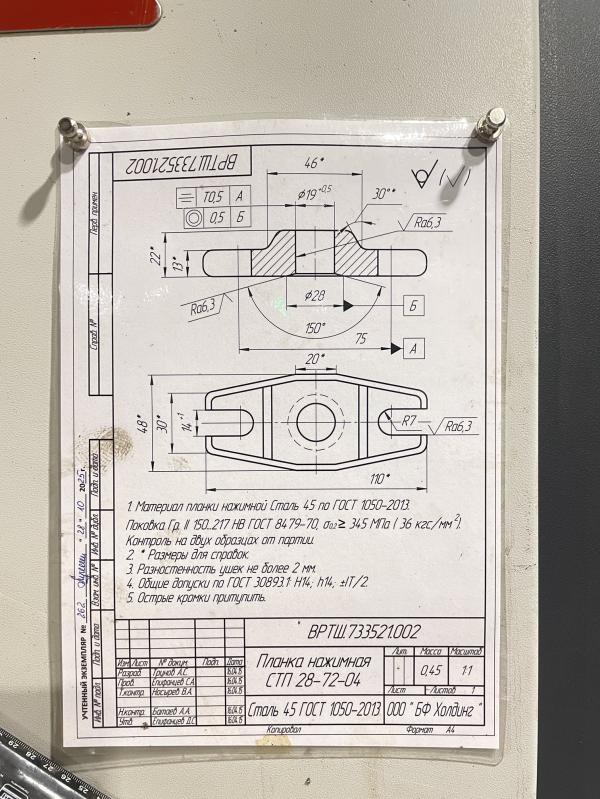 ВРТШ.733521.002
Перв. примен.
Справ. №
Подп. и дата
Инв. № дубл.
Взам. инв. №
Подп. и дата
Инв. № подл.
УЧТЕННЫЙ ЭКЗЕМПЛЯР № 262 "28" 10 2025 г.
46*
T0,5 А
0,5 Б
⌀19+0,5
30°*
Ra6,3
22*
13*
Ra6,3
⌀28
Б
150°
75
А
20*
48*
30*
14+1
R7
Ra6,3
110*
1. Материал планки нажимной Сталь 45 по ГОСТ 1050-2013.
Поковка Гр. II 150...217 НВ ГОСТ 8479-70, σ0,2≥ 345 МПа ( 36 кгс/мм²).
Контроль на двух образцах от партии.
2. * Размеры для справок.
3. Разностенность ушек не более 2 мм.
4. Общие допуски по ГОСТ 30893.1: H14; h14; ±IT/2.
5. Острые кромки притупить.
ВРТШ.733521.002
Изм. Лист № докум. Подп. Дата
Разраб. Трунов А.С. 16.04.15
Пров. Епифанцев С.А. 16.04.15
Т.контр. Носырев В.А. 16.04.15
Н.контр. Батаев А.А. 16.04.15
Утв. Епифанцев Д.С. 16.04.15
Планка нажимная
СТП 28-72-04
Лит. Масса Масштаб
0,45 1:1
Лист Листов 1
Сталь 45 ГОСТ 1050-2013
ООО "БФ Холдинг"
Копировал Формат А4
29
28
27
26
25
24